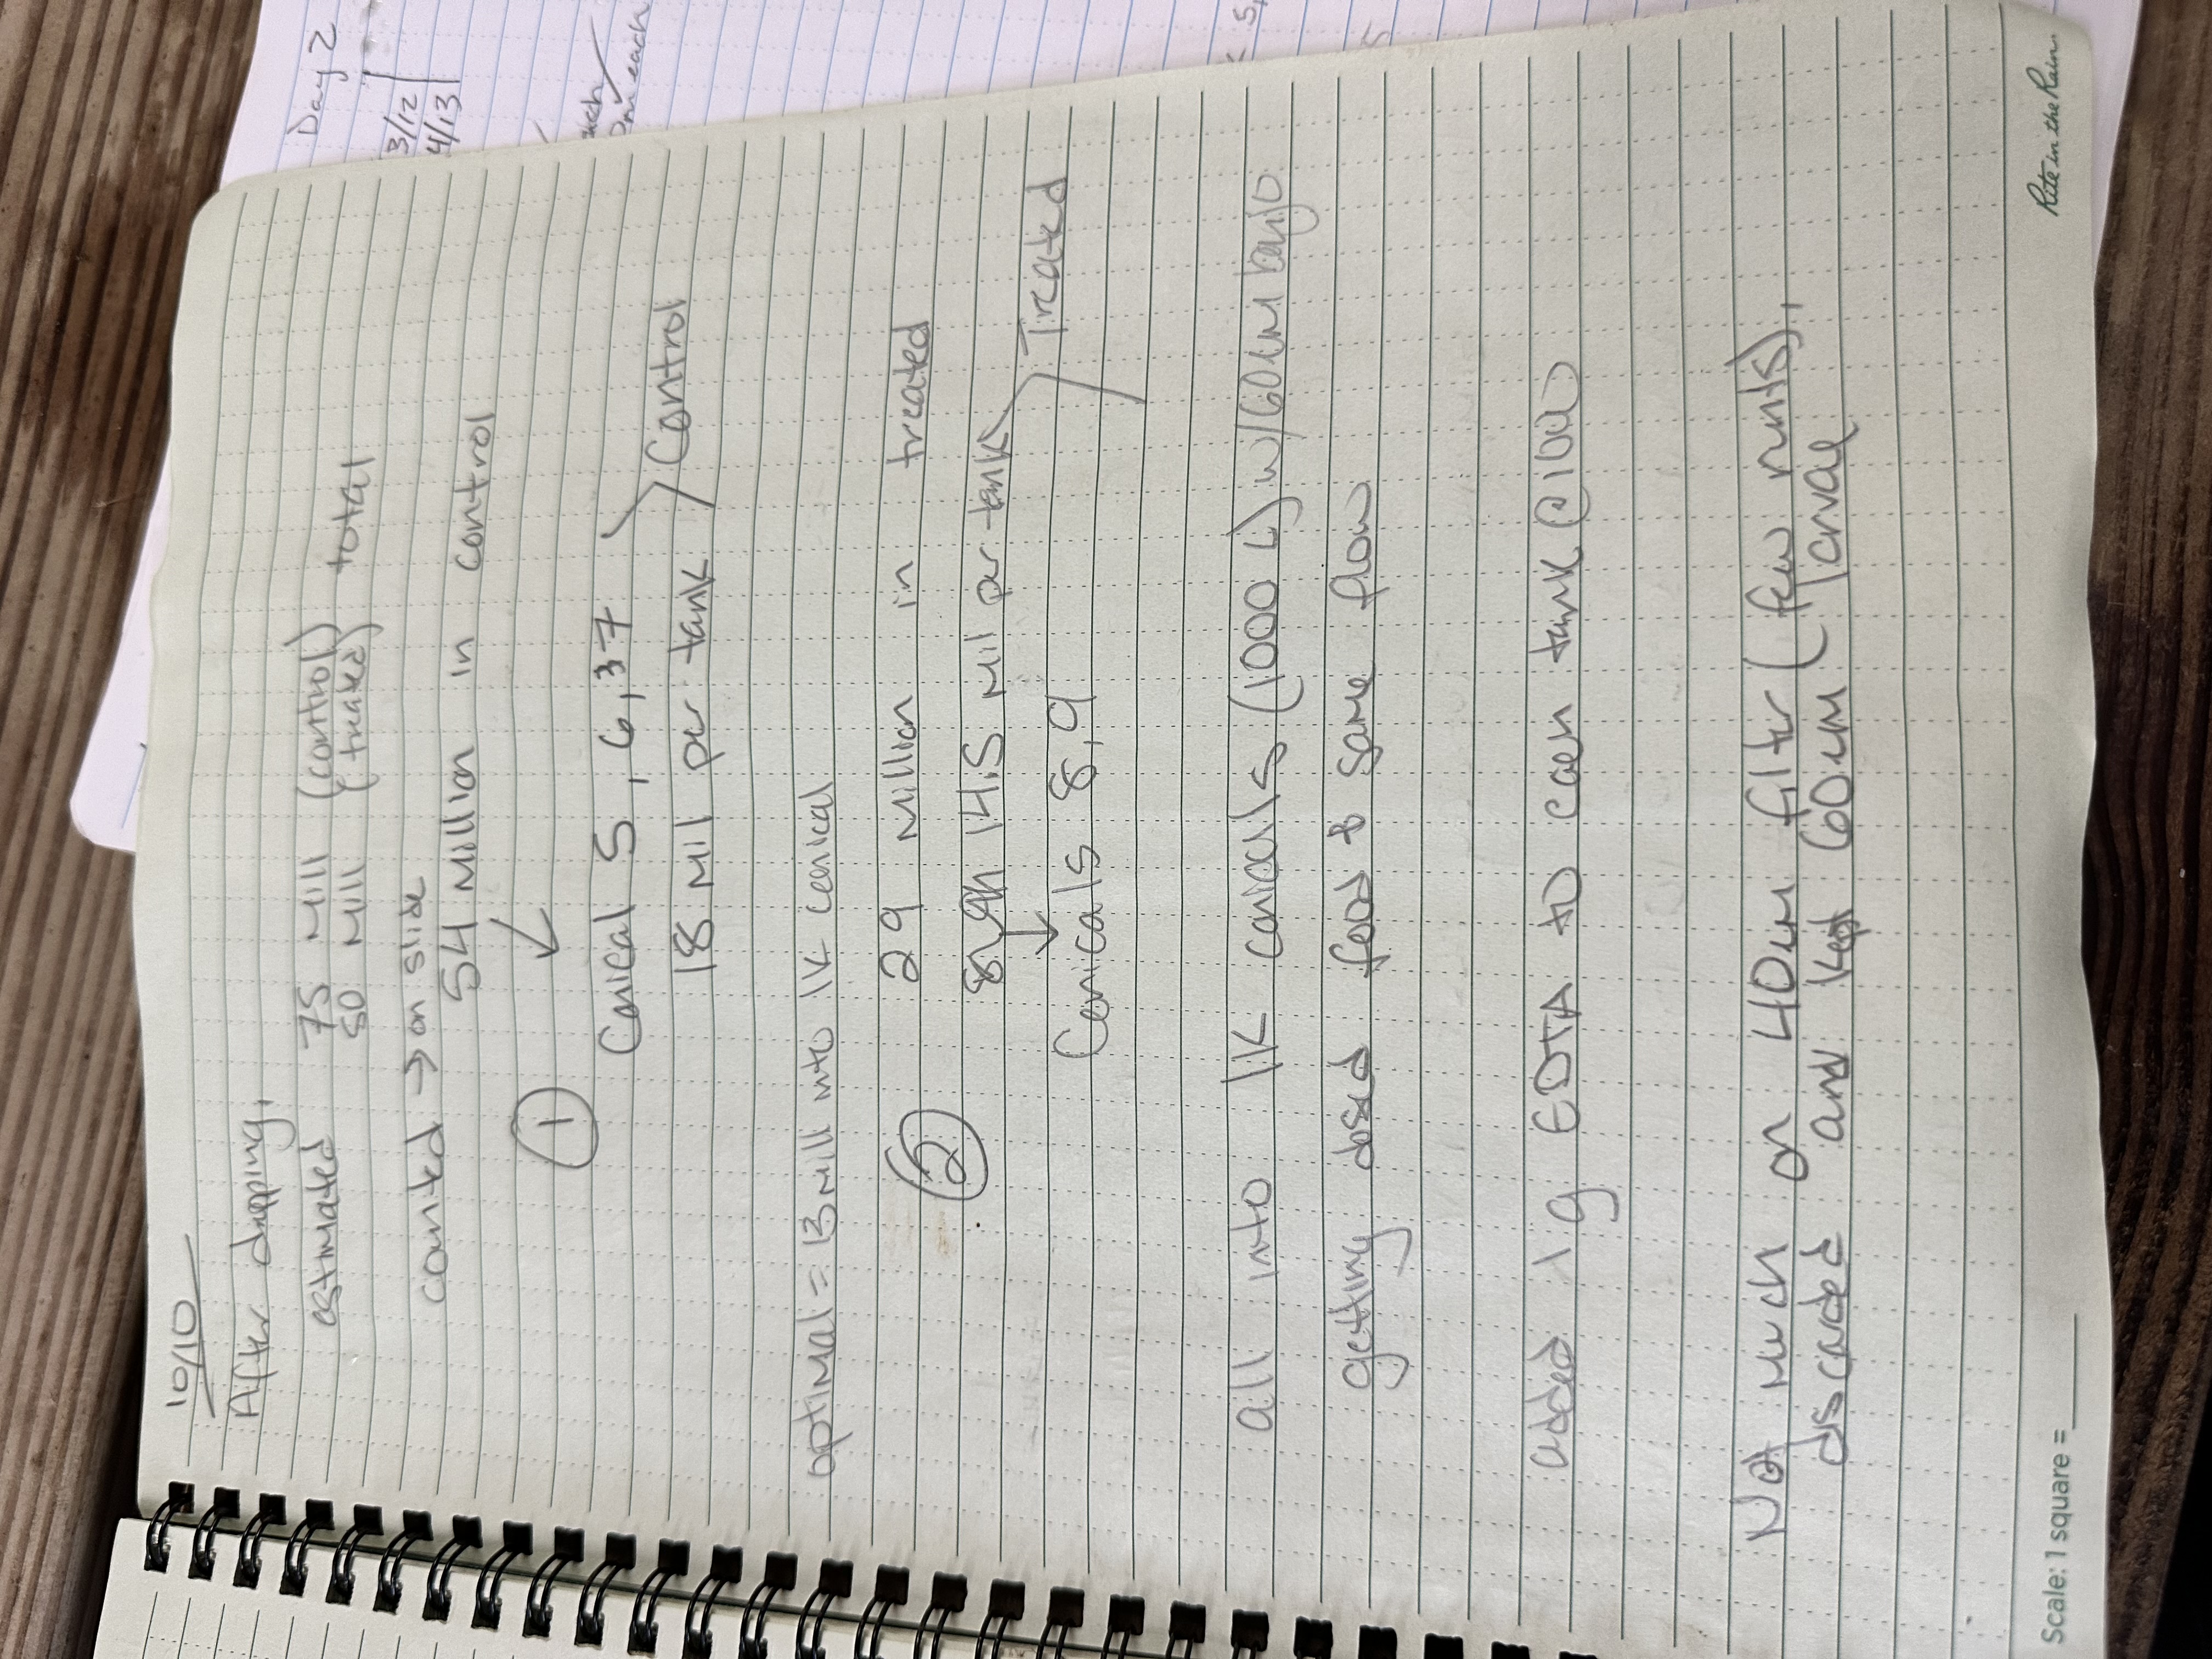 10/10
After dropping,
estimated 75 Mill (control)
50 Mill (treated) total
counted → on slide
54 Million in control
①
Conical 5, 6, 7
18 Mil per tank
Control
optimal = 13 Mill into 1K conical
② 29 Million in treated
14.5 Mil per tank
Conicals 8, 9
Treated
all into 1K conicals (1000 L) w/60um banjo
getting dosed food & same flow
added 1 g EDTA to each tank @1000
Not much on 40um filter (few runts),
discarded and kept 60um larvae
Scale: 1 square =
Rite in the Rain
Day 2
3/12
4/13
each